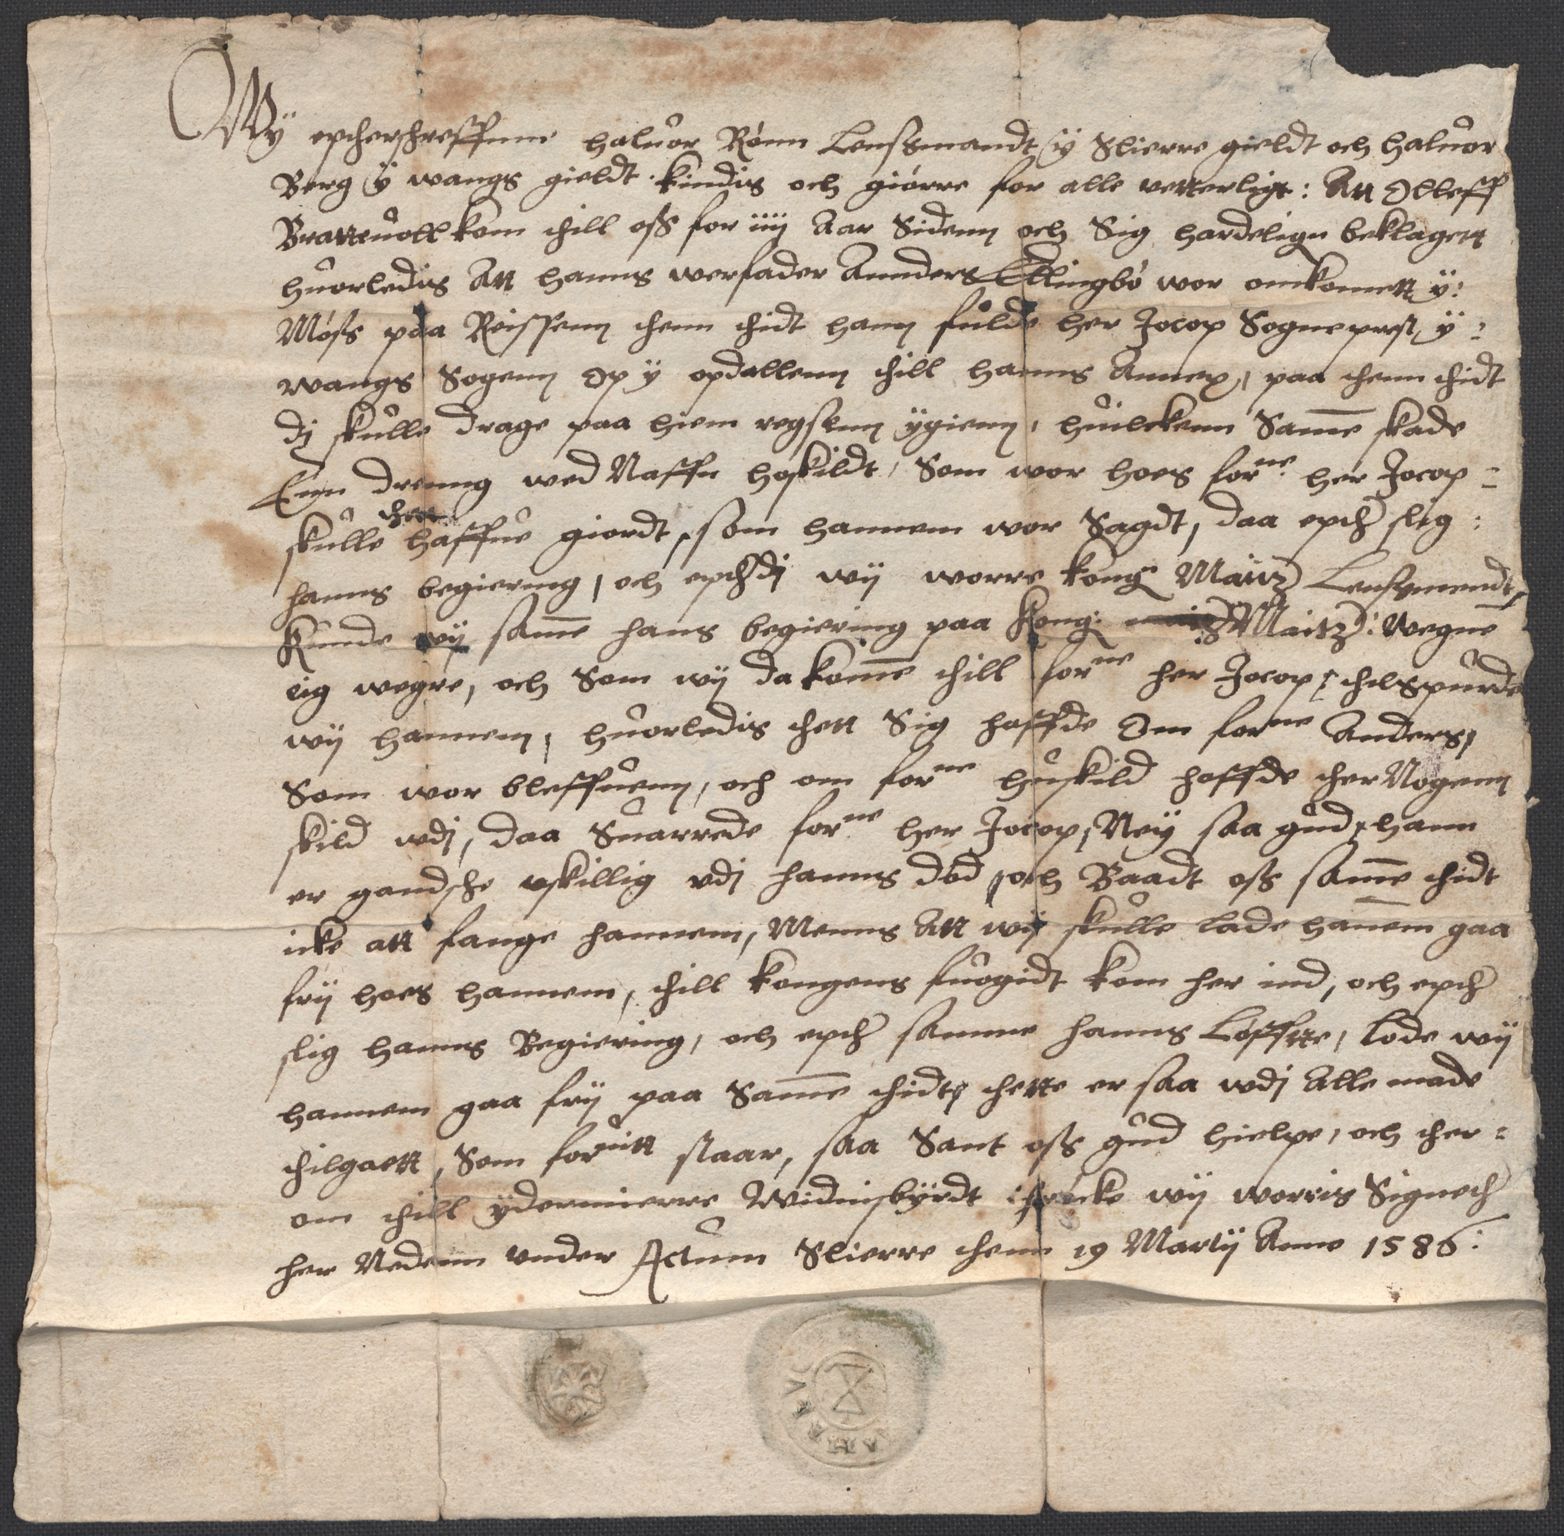 Wy epctherschreffne haluor Rönn Lenssmandt y Slierre gieldt och haluor
Berg y wangs gieldt kindis och giörre for alle vetterligt: Att Olleff
Brattuoll kom thill oss for iiij Aar Sidenn och Sig hardeligen beklagett
huorledis Att hanns werfader Annders Ellingbö wor omkomett y:
Möss paa Reissenn thenn thidt hann fulde her Jocop Sogneprest y:
wangs Sogenn Op y opdallenn thill hanns Annex, paa thenn thidt
dj skulle drage paa hiem regsenn ygienn, huilckenn Samme skade
Enn drenng wed Naffn hoskildt, Som wor hoes forne her Jocop -
skulle thett haffue giordt, som hannem wor Sagdt, daa epther slig:
hanns begiering, och eptherdj wij worre kong Maitz Lenssmendt,
kunde wij same hans begiering paa Kong: Maitz: wegne
eig wegre, och Som wij da kome thill forne her Jocop, thilspurde
wij hannem, huorledis thett Sig haffde Om forne Anders,
Som wor bleffuenn, och om forne huskild haffde ther Nogenn
skild wdj, daa Suarrede forne her Jocop, Ney saa gud, hann
er gandske wskillig vdj hanns död, och Baadt oss same thidt
icke att fange hannem, Menns Att wij skulle lade hanem gaa
frij hoes hannem, thill kongens fuogidt kom her ind, och epther
slig hanns Begiering, och epther samme hanns Löffte, lode wij
hannem gaa frij paa Same thidt, thette er saa wdj Alle made
thilgaett, Som foruitt staar, saa Sant oss gud hielpe, och ther=
om thill ydermierre Widnisbyrdt thröcke wij worris Signether
her Nedenn vnder Actum Slierre thenn 19 Martij Anno 1586: